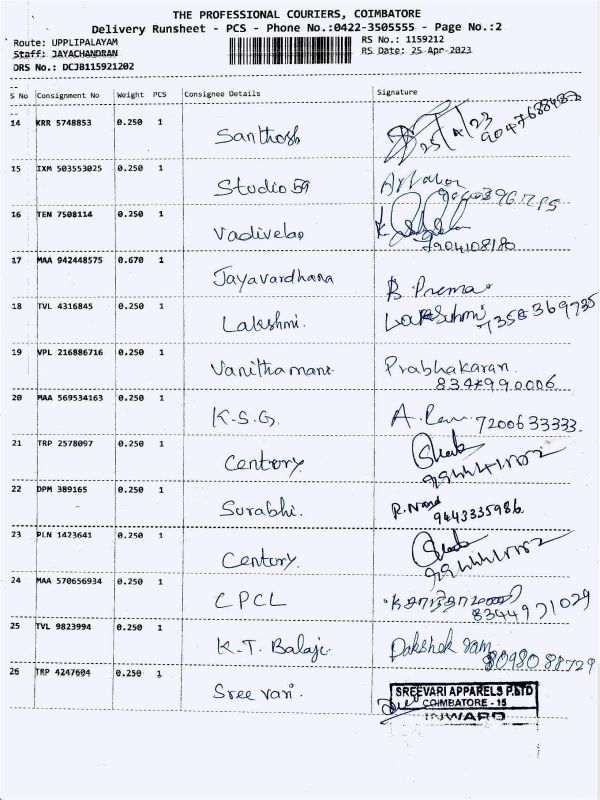 THE PROFESSIONAL COURIERS, COIMBATORE
Delivery Runsheet - PCS - Phone No.:0422-3505555 - Page No.:2
Route: UPPLIPALAYAM RS No.: 1159212
Staff: JAYACHANDRAN RS Date: 25 Apr 2023
DRS No.: DCJB115921202
S No Consignment No Weight PCS Consignee Details Signature
14 KRR 5748853 0.250 1 Santhosh 25/4/23 9047688482
15 IXM 503553025 0.250 1 Studio 59
16 TEN 7508114 0.250 1 Vadivelan 7904108180
17 MAA 942448575 0.670 1 Jayavardhana B Prema
18 TVL 4316845 0.250 1 Lakshmi. Lakshmi 7358369735
19 VPL 216886716 0.250 1 Vanithamani Prabhakaran.
8344990006
20 MAA 569534163 0.250 1 K.S.G. A. 7200633333.
21 TRP 2578097 0.250 1 Century
22 DPM 389165 0.250 1 Surabhi. R. Nand
9443335986
23 PLN 1423641 0.250 1 Century
24 MAA 570656934 0.250 1 CPCL
8344971029
25 TVL 9823994 0.250 1 K.T. Balaji Dakshak ram
8098088729
26 TRP 4247604 0.250 1 Sreevari
SREEVARI APPARELS P.LTD
COIMBATORE - 15
INWARD